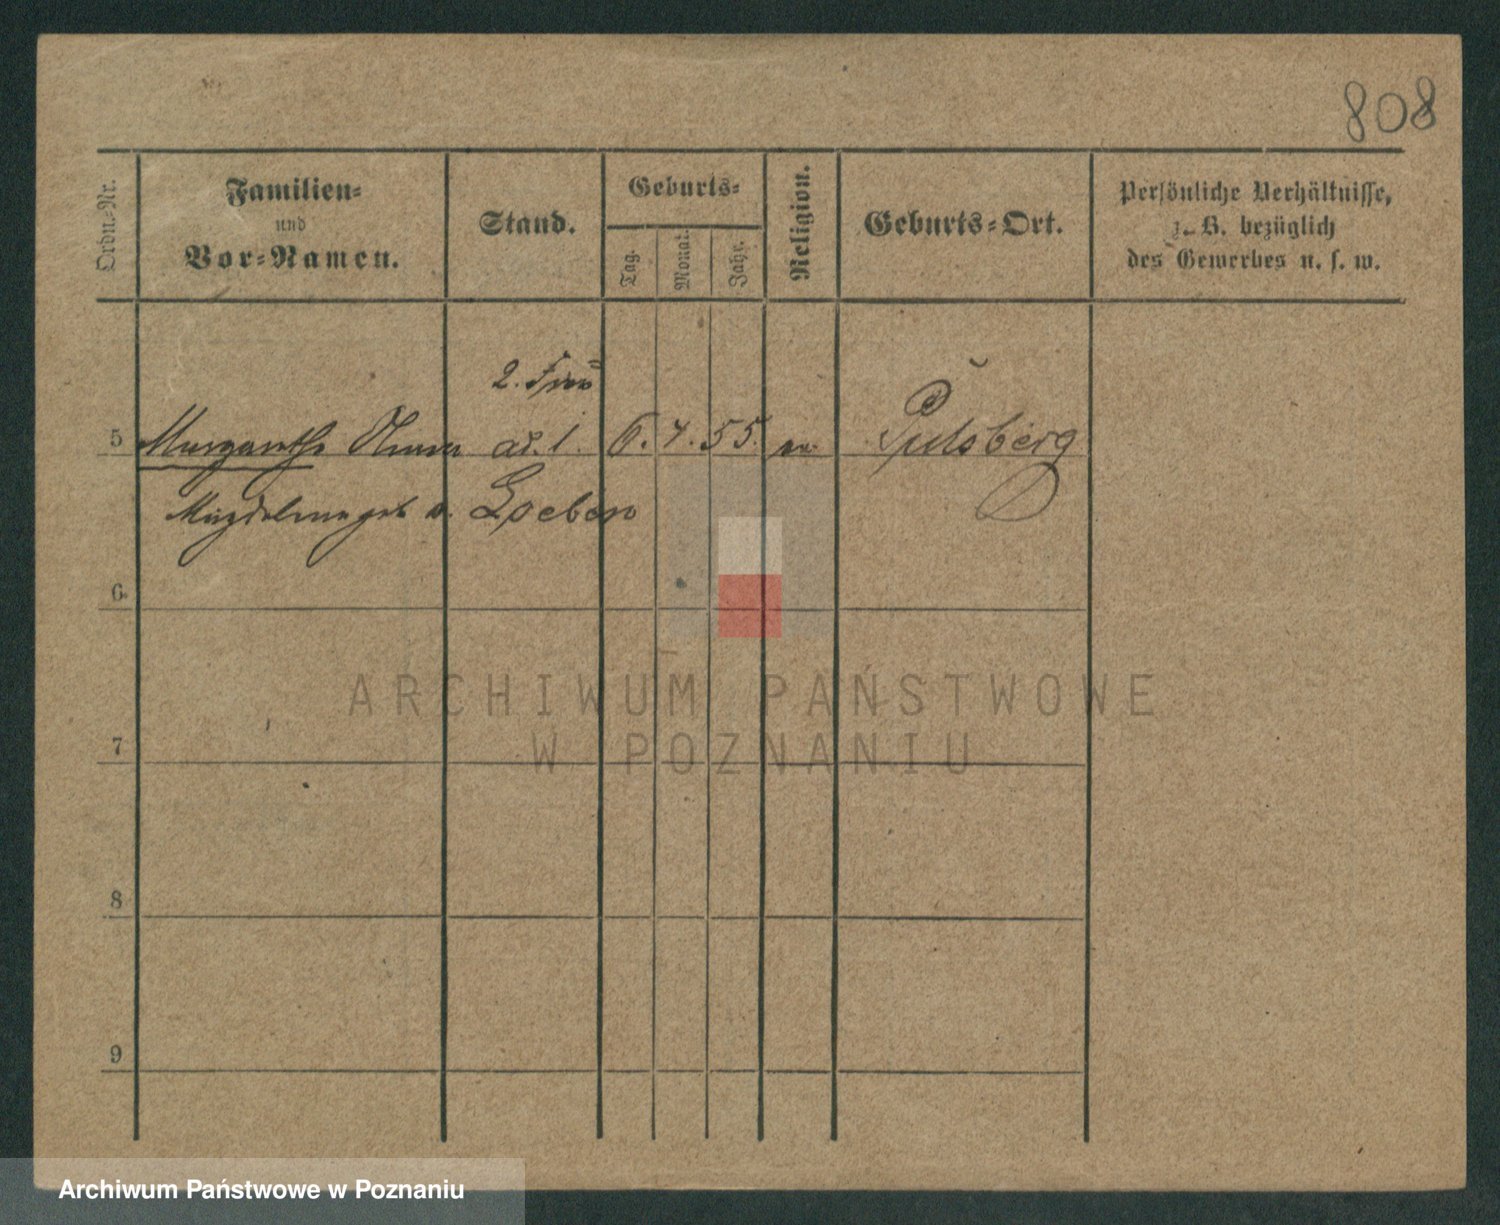 808
Ordn.-Nr.
Familien-
und
Vor-Namen.
Stand.
Geburts-
Tag.
Monat.
Jahr.
Religion.
Geburts-Ort.
Persönliche Verhältnisse,
z. B. bezüglich
des Gewerbes u. s. w.
2. Frau
5 Margarethe Anna ad. 1. 6. 4. 55. ev. Pulsberg
Magdalena geb. v. Loeben
6.
7
8
9
ARCHIWUM PAŃSTWOWE
W POZNANIU
Archiwum Państwowe w Poznaniu